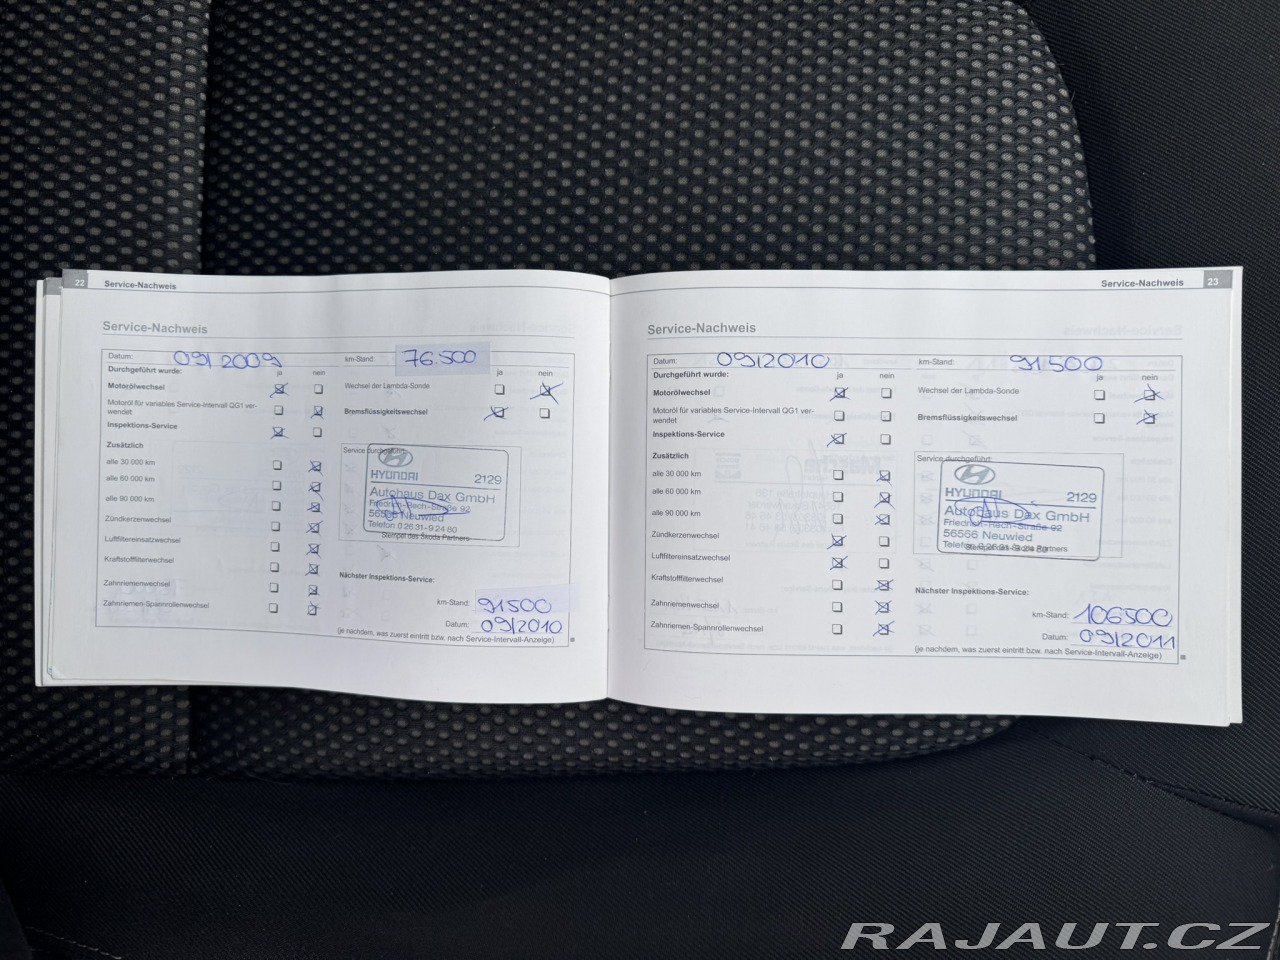 22 Service-Nachweis
Service-Nachweis
Datum: 09/2009 km-Stand: 76.500
Durchgeführt wurde: ja nein ja nein
Motorölwechsel Wechsel der Lambda-Sonde
Motoröl für variables Service-Intervall QG1 ver-
wendet Bremsflüssigkeitswechsel
Inspektions-Service
Zusätzlich
alle 30 000 km
alle 60 000 km
alle 90 000 km
Zündkerzenwechsel
Luftfiltereinsatzwechsel
Kraftstofffilterwechsel
Zahnriemenwechsel
Zahnriemen-Spannrollenwechsel
Service durchgeführt:
HYUNDAI 2129
Autohaus Dax GmbH
Friedrich-Rech-Straße 92
56566 Neuwied
Telefon 0 26 31 - 9 24 80
Stempel des Škoda Partners
Nächster Inspektions-Service:
km-Stand: 91500
Datum: 09/2010
(je nachdem, was zuerst eintritt bzw. nach Service-Intervall-Anzeige)
Service-Nachweis 23
Service-Nachweis
Datum: 09/2010 km-Stand: 91500
Durchgeführt wurde: ja nein ja nein
Motorölwechsel Wechsel der Lambda-Sonde
Motoröl für variables Service-Intervall QG1 ver-
wendet Bremsflüssigkeitswechsel
Inspektions-Service
Zusätzlich
alle 30 000 km
alle 60 000 km
alle 90 000 km
Zündkerzenwechsel
Luftfiltereinsatzwechsel
Kraftstofffilterwechsel
Zahnriemenwechsel
Zahnriemen-Spannrollenwechsel
Service durchgeführt:
HYUNDAI 2129
Autohaus Dax GmbH
Friedrich-Rech-Straße 92
56566 Neuwied
Telefon
Partners
Nächster Inspektions-Service:
km-Stand: 106500
Datum: 09/2011
(je nachdem, was zuerst eintritt bzw. nach Service-Intervall-Anzeige)
RAJAUT.CZ